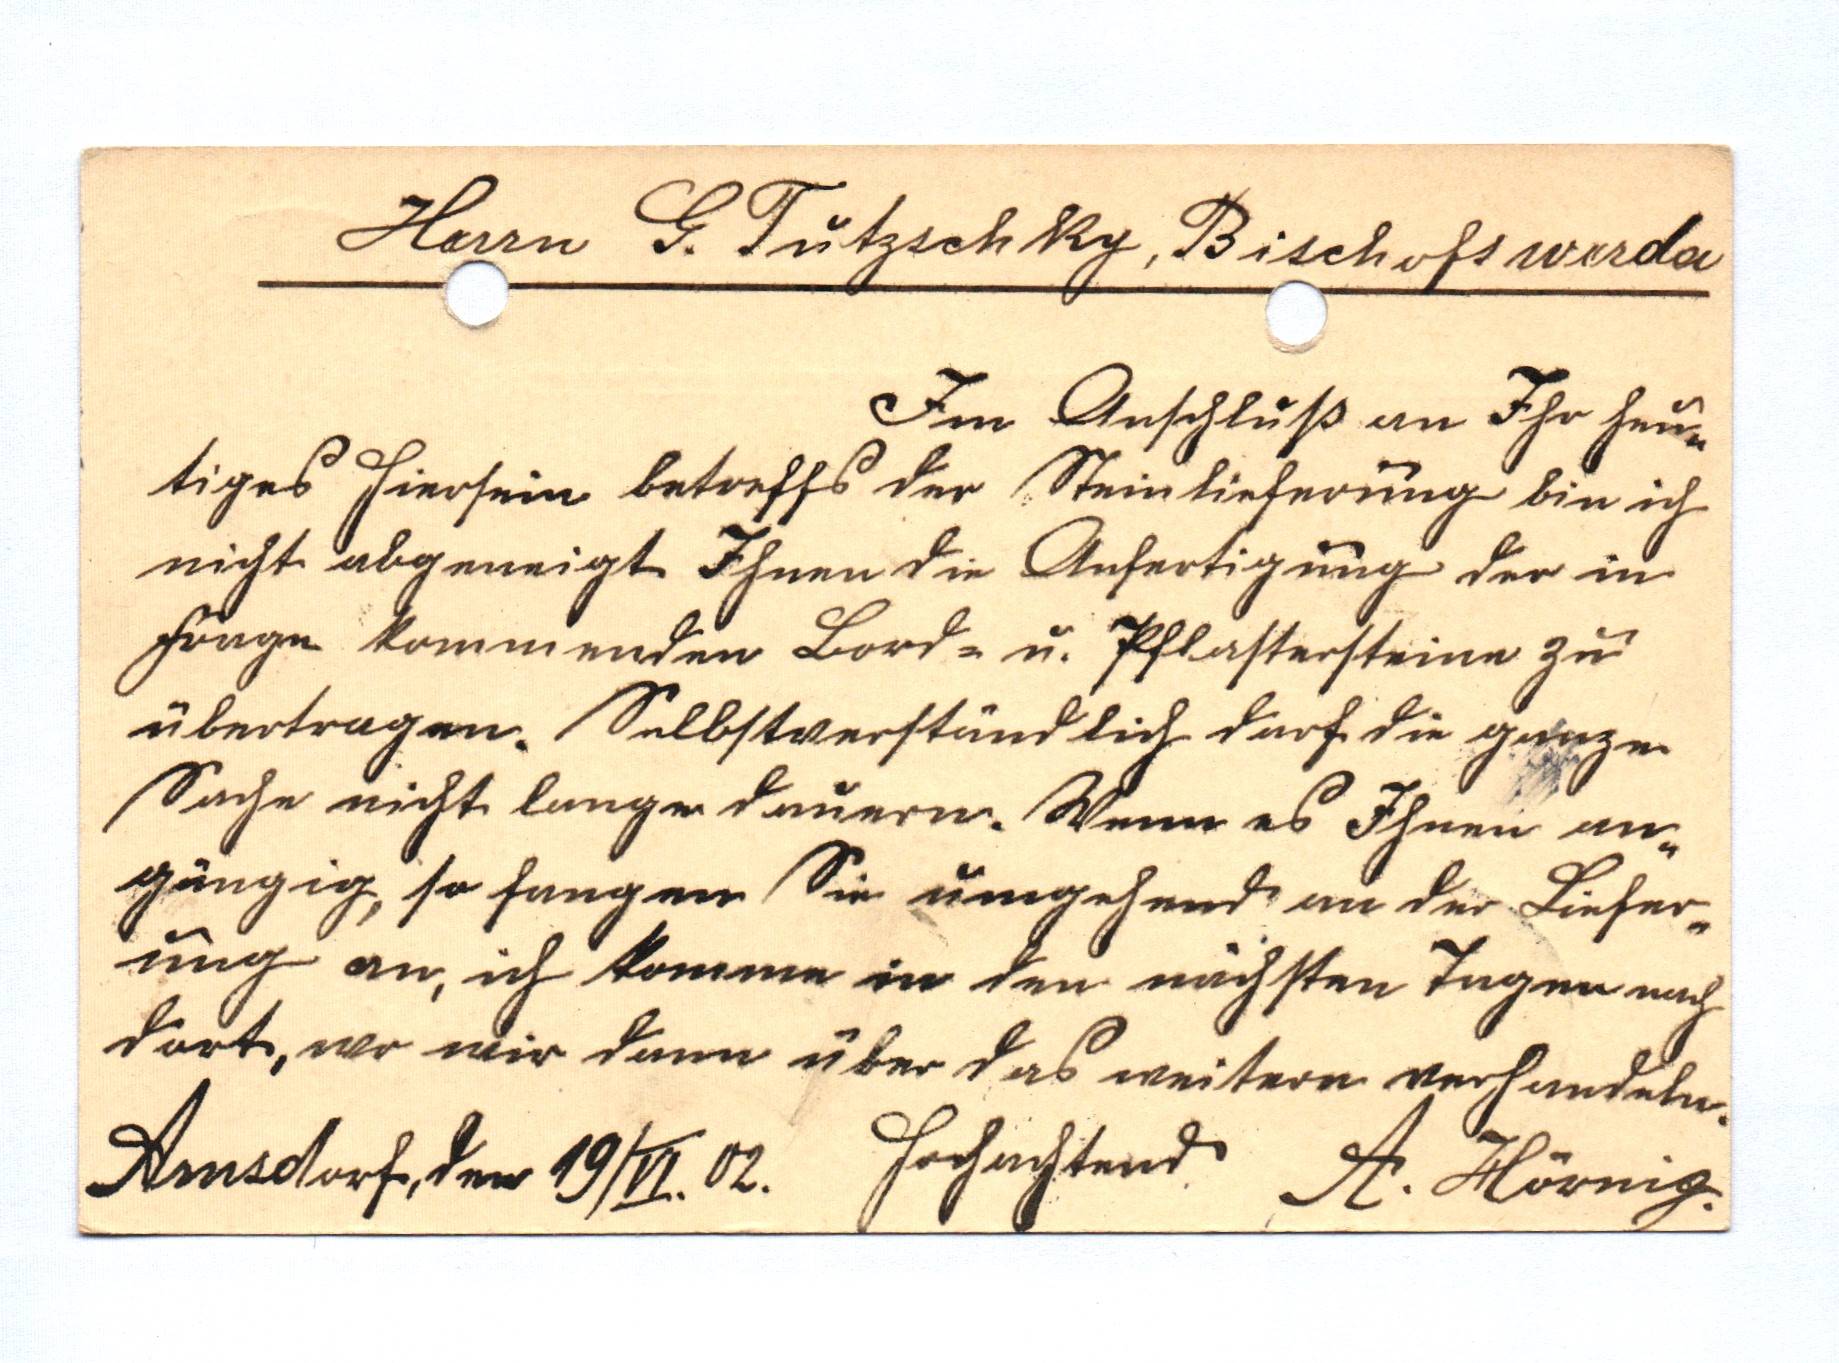 Herrn G. Tützschky, Bischofswerda
Im Anschluß an Ihr heu-
tiges Hiersein betreffs der Steinlieferung bin ich
nicht abgeneigt Ihnen die Anfertigung der in
Frage kommenden Bord- u. Pflastersteine zu
übertragen. Selbstverständlich darf die ganze
Sache nicht lange dauern. Wenn es Ihnen an-
gängig, so fangen Sie umgehend an der Liefer-
ung an, ich komme in den nächsten Tagen nach
dort, wo wir dann über das weitere verhandeln.
Arnsdorf, den 19/VI. 02. Hochachtend A. Hörnig.